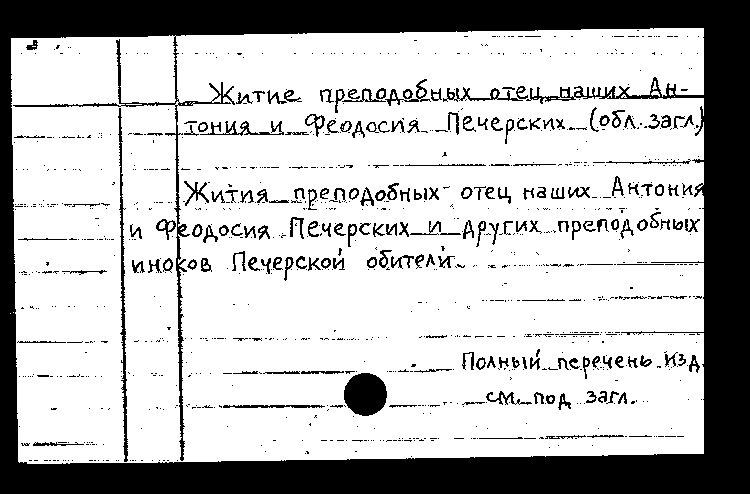 Житие преподобных отец наших Ан-
тония и Феодосия Печерских (обл. загл.)
Жития преподобных отец наших Антония
и Феодосия Печерских и других преподобных
иноков Печерской обители.
Полный перечень изд.
см. под загл.